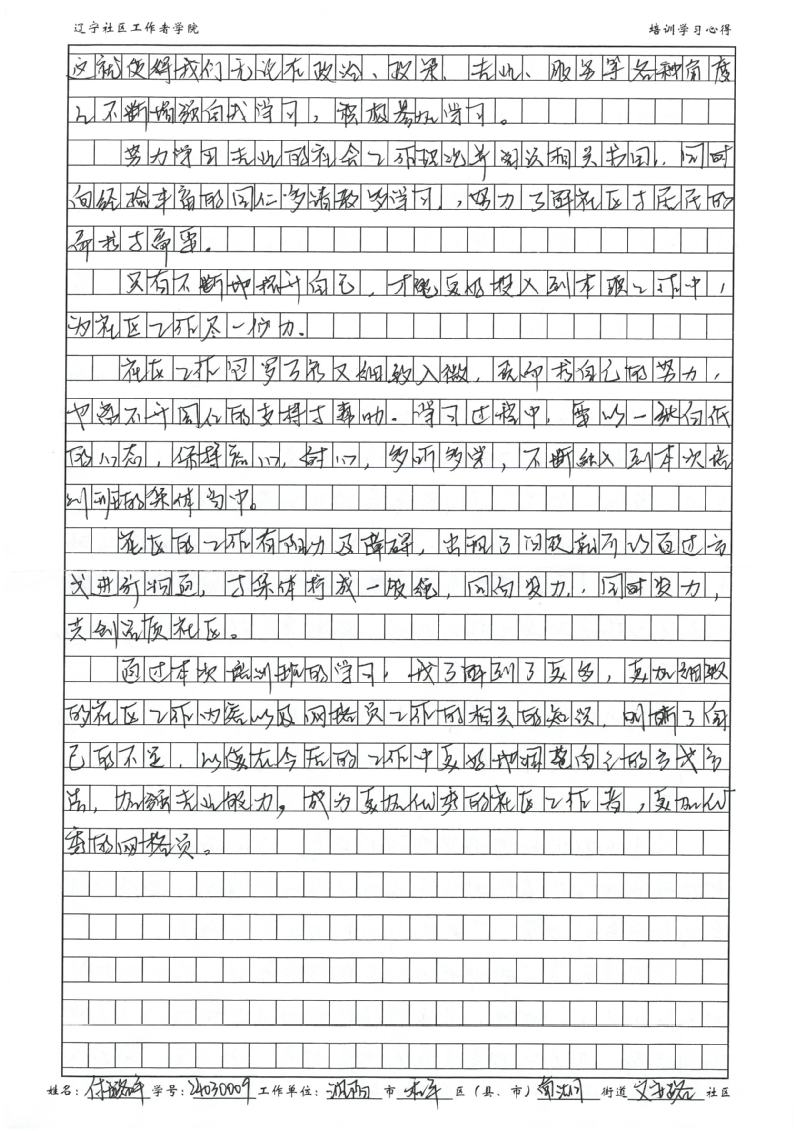 辽宁社区工作者学院 培训学习心得
这就使得我们无论在政治、政策、专业、服务等各种角度
上不断增强自我学习，积极参加学习。
努力学习专业的社会工作理论并阅读相关书目，同时
向经验丰富的同仁多请教多学习，努力了解社区才居民的
需求才需要。
只有不断地提升自己，才能更好投入到本职工作中，
为社区工作尽一份力.
社区工作包罗万象又细致入微，我们自己的努力，
也离不开同仁的支持才帮助。学习过程中，要以一种向低
的心态，保持、耐心，多听多学，不断融入到本次培
训班的集体当中。
社区的工作有阻力及障碍，出现了问题就所以通过方
式进行，才集体拧成一股绳，同向发力，同时发力，
共创品质社区。
通过本次培训班的学习，我了解到了更多，更加细致
的社区工作内容以及网格员工作的相关的知识，明晰了自
己的不足，以便在今后的工作中更好地规范自己的方式方
法，加强专业能力，成为更加优秀的社区工作者，更加优
秀的网格员。
姓名： 学号：24030009 工作单位： 市 区（县、市） 街道 社区